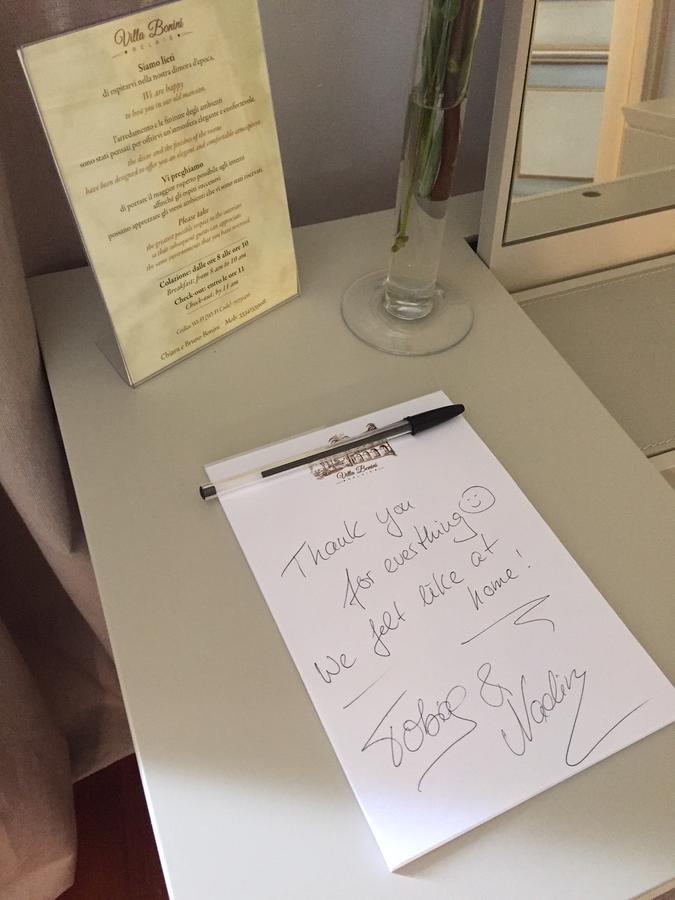 Villa Bonini
RELAIS
Siamo lieti
di ospitarvi nella nostra dimora d'epoca,
We are happy
to host you in our old mansion,
l'arredamento e le finiture degli ambienti
sono stati pensati per offrirvi un'atmosfera elegante e confortevole.
the decor and the finishes of the rooms
have been designed to offer you an elegant and comfortable atmosphere.
Vi preghiamo
di portare il maggior rispetto possibile agli interni
affinché gli ospiti successivi
possano apprezzare gli stessi ambienti che vi sono stati riservati.
Please take
the greatest possible respect to the interiors
so that subsequent guests can appreciate
the same environments that you have reserved.
Colazione: dalle ore 8 alle ore 10
Breakfast: from 8 am to 10 am
Check-out: entro le ore 11
Check-out: by 11 am
Codice Wi-Fi (Wi-Fi Code):
Chiara e Bruno Bonini Mob:
Villa Bonini
RELAIS
Thank you
for everthing
We felt like at
home!
Tobias &
Nadin